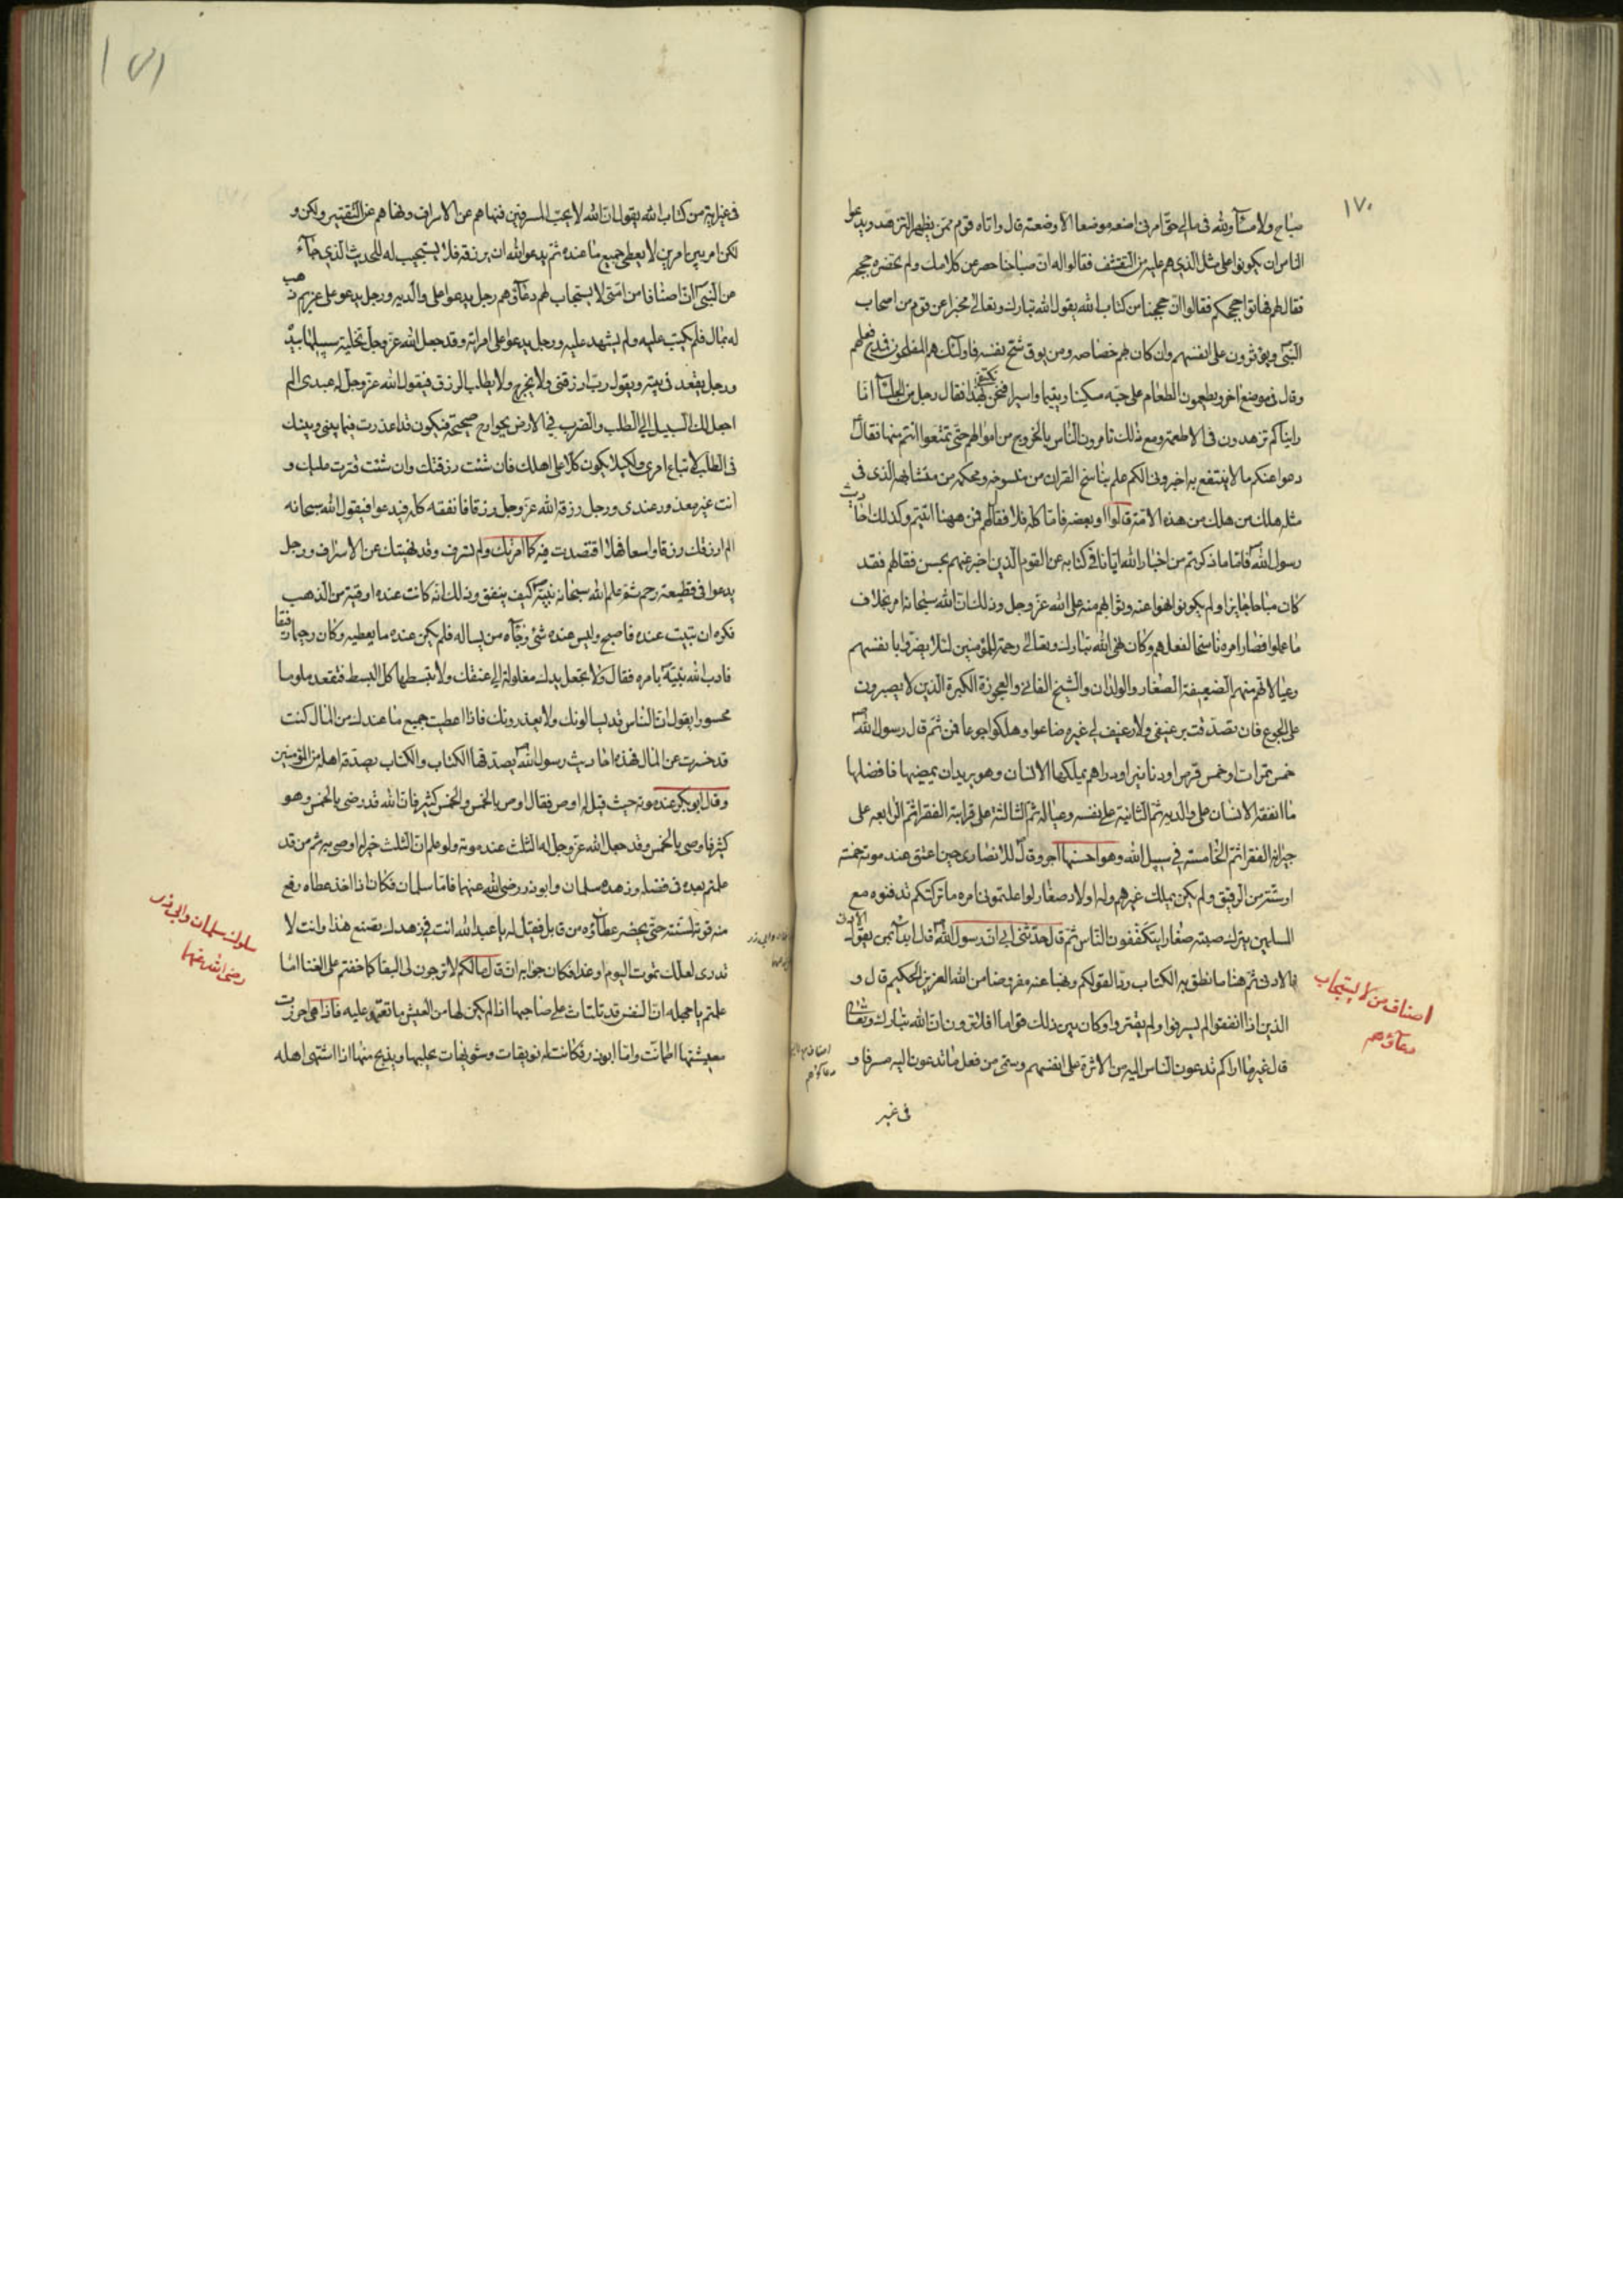 ١٧٠
صباح ولا مسآء ولله فی مالی حق امرنی اضعه موضعا الا وضعته قال واتاه قوم ممن یظهر التزهد ویدعوا
الناس ان یکونوا علی مثل الذی هم علیه من التقشف فقالوا له ان صباحنا حصر عن کلامك ولم تحضره حججه
فقال لهم فهاتوا حججکم فقالوا ان حججنا من کتاب الله یقول الله تبارك وتعالی مخبرا عن قوم من اصحاب
النبی ویؤثرون علی انفسهم وان کان بهم خصاصه ومن یوق شح نفسه فاولئك هم المفلحون فمدح فعلهم
وقال فی موضع اخر ویطعمون الطعام علی حبه مسکینا ویتیما واسیرا فنحن نکتفی بهذا فقال رجل من الجلسآء انا
رایناکم تزهدون فی الاطعمة ومع ذلك تامرون الناس بالخروج من اموالهم حتی تمتعوا انتم منها فقال
دعوا عنکم ما لا ینتفع به اخبرونی الکم علم بناسخ القران من منسوخه ومحکمه من متشابهه الذی فی
مثله هلك من هلك من هذه الامة قالوا او بعضه فاما کله فلا فقال لهم فمن ههنا اتیتم وکذلك احادیث
رسول الله فاما ما ذکرتم من اخبار الله ایانا فی کتابه عن القوم الذین اخبر عنهم بحسن فعالهم فقد
کان مباحا جایزا ولم یکونوا نهوا عنه وثوابهم منه علی الله عز وجل وذلك ان الله سبحانه امر بخلاف
ما عملوا فصار امره ناسخا لفعلهم وکان نهی الله تبارك وتعالی رحمة للمؤمنین لئلا یضروا بانفسهم
وعیالاتهم منهم الضعیفة الصغار والولدان والشیخ الفانی والعجوزة الکبیرة الذین لا یصبرون
علی الجوع فان تصدقت برغیفی ولا رغیف لی غیره ضاعوا وهلکوا جوعا فمن ثم قال رسول الله
خمس تمرات او خمس قرص او دنانیر او دراهم یملکها الانسان وهو یرید ان یمضیها فافضلها
ما انفقه الانسان علی والدیه ثم الثانیة علی نفسه وعیاله ثم الثالثة علی قرابته الفقرا ثم الرابعه علی
جیرانه الفقرا ثم الخامسة فی سبیل الله وهو احسنها اجرا وقال للانصاری حین اعتق عند موته خمسة
او ستة من الرقیق ولم یکن یملك غیرهم وله اولاد صغار لو اعلمتمونی امره ما ترکتکم تدفنوه مع
المسلمین یترك صبیة صغارا یتکففون الناس ثم قال حدثنی ابی ان رسول الله قال ابدأ بمن تعول الادنی
فالادنی ثم هذا ما نطق به الکتاب ردا لقولکم ونهیا عنه مفروضا من الله العزیز الحکیم قال و
الذین اذا انفقوا لم یسرفوا ولم یقتروا وکان بین ذلك قواما افلا ترون ان الله تبارك وتعالی
قال غیر ما اراکم تدعون الناس الیه من الاثرة علی انفسهم وسمی من فعل ما تدعون الیه مسرفا و
فی غیر
اصناف من لا یستجاب
دعآؤهم
١٧١
فی غیر ایة من کتاب الله یقول ان الله لا یحب المسرفین فنهاهم عن الاسراف ونهاهم عن التقتیر ولکن و
لکن امر بین امرین لا یعطی جمیع ما عنده ثم یدعو الله ان یرزقه فلا یستجیب له للحدیث الذی جآء
عن النبی ان اصنافا من امتی لا یستجاب لهم دعآؤهم رجل یدعوا علی والدیه ورجل یدعو علی غریم ذهب
له بمال فلم یکتب علیه ولم یشهد علیه ورجل یدعوا علی امراته وقد جعل الله عز وجل تخلیة سبیلها بیده
ورجل یقعد فی بیته ویقول رب ارزقنی ولا یخرج ولا یطلب الرزق فیقول الله عز وجل له عبدی الم
اجعل لك السبیل الی الطلب والضرب فی الارض بجوارح صحیحة فتکون قد اعذرت فیما بینی وبینك
فی الطلب لاتباع امری ولکیلا یکون کلا علی اهلك فان شئت رزقتك وان شئت قترت علیك و
انت غیر معذور عندی ورجل رزقه الله عز وجل رزقا فانفقه کله فیدعوا فیقول الله سبحانه
الم ارزقك رزقا واسعا فهلا اقتصدت فیه کما امرتك ولم تسرف وقد نهیتك عن الاسراف ورجل
یدعوا فی قطیعة رحم ثم علم الله سبحانه نبیه کیف ینفق وذلك انه کانت عنده اوقیة من الذهب
فکره ان تبیت عنده فاصبح ولیس عنده شئ وجآءه من یساله فلم یکن عنده ما یعطیه وکان رحیما رفیقا
فادب الله نبیه بامره فقال ولا تجعل یدك مغلولة الی عنقك ولا تبسطها کل البسط فتقعد ملوما
محسورا یقول ان الناس قد یسالونك ولا یعذرونك فاذا اعطیت جمیع ما عندك من المال کنت
قد خسرت عن المال فهذه احادیث رسول الله یصدقها الکتاب والکتاب یصدقه اهله من المؤمنین
وقال ابو بکر عند موته حیث قیل له اوص فقال اوصی بالخمس والخمس کثیر فان الله قد رضی بالخمس وهو
کثیر فاوصی بالخمس وقد جعل الله عز وجل له الثلث عند موته ولو علم ان الثلث خیر له اوصی به ثم من قد
علمتم بعده فی فضله وزهده سلمان وابو ذر رضی الله عنهما فاما سلمان فکان اذا اخذ عطاه رفع
منه قوته لسنته حتی یحضر عطاؤه من قابل فقیل له یا عبد الله انت فی زهدك تصنع هذا وانت لا
تدری لعلك تموت الیوم او غدا فکان جوابه ان قال ما لکم لا ترجون لی البقا کما خفتم علی الفنا اما
علمتم یا جهله ان النفس قد تلتاث علی صاحبها اذا لم یکن لها من العیش ما تعتمد علیه فاذا هی احرزت
معیشتها اطمانت واما ابو ذر فکانت له نویقات وشویهات یحلبها ویذبح منها اذا اشتهی اهله
سلوك سلمان وابی ذر
رضی الله عنهما